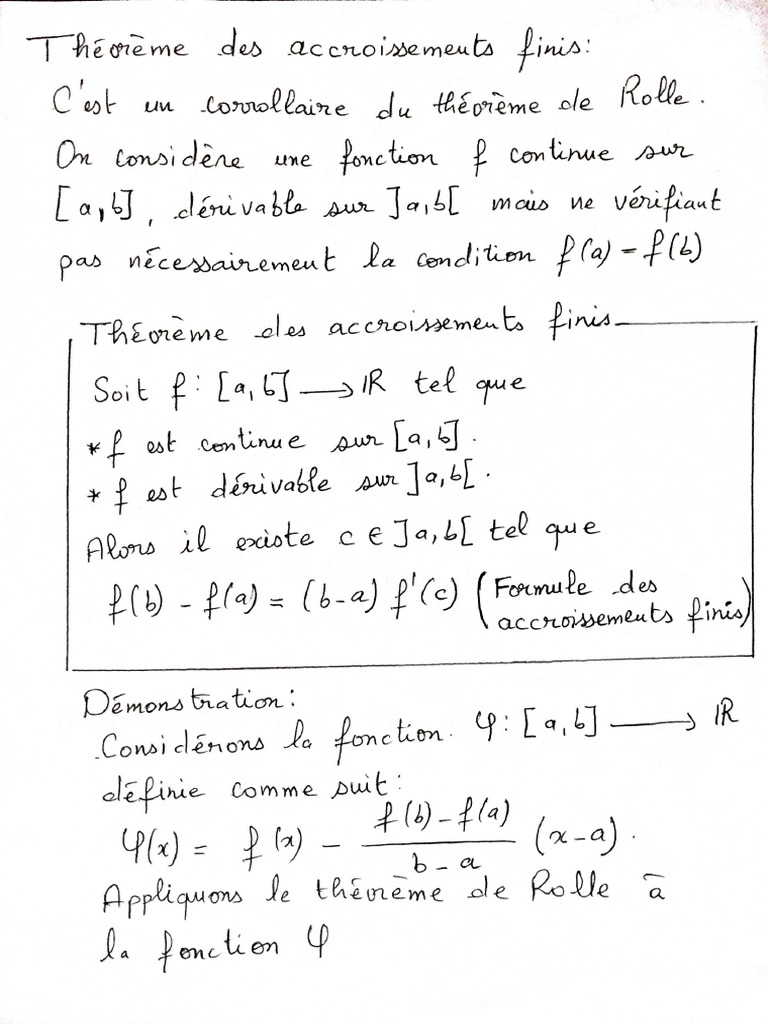 Théorème des accroissements finis:
C'est un corrollaire du théorème de Rolle.
On considère une fonction f continue sur
[a,b], dérivable sur ]a,b[ mais ne vérifiant
pas nécessairement la condition f(a) = f(b)
Théorème des accroissements finis
Soit f: [a,b] → ℝ tel que
* f est continue sur [a,b].
* f est dérivable sur ]a,b[.
Alors il existe c ∈ ]a,b[ tel que
f(b) - f(a) = (b-a) f'(c) (Formule des
accroissements finis)
Démonstration:
Considérons la fonction φ: [a,b] → ℝ
définie comme suit:
φ(x) = f(x) - \frac{f(b)-f(a)}{b-a} (x-a).
Appliquons le théorème de Rolle à
la fonction φ